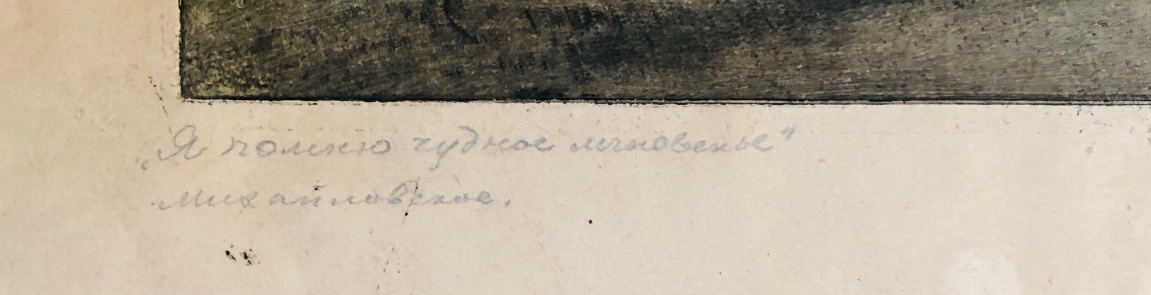 „Я помню чудное мгновенье"
Михайловское.